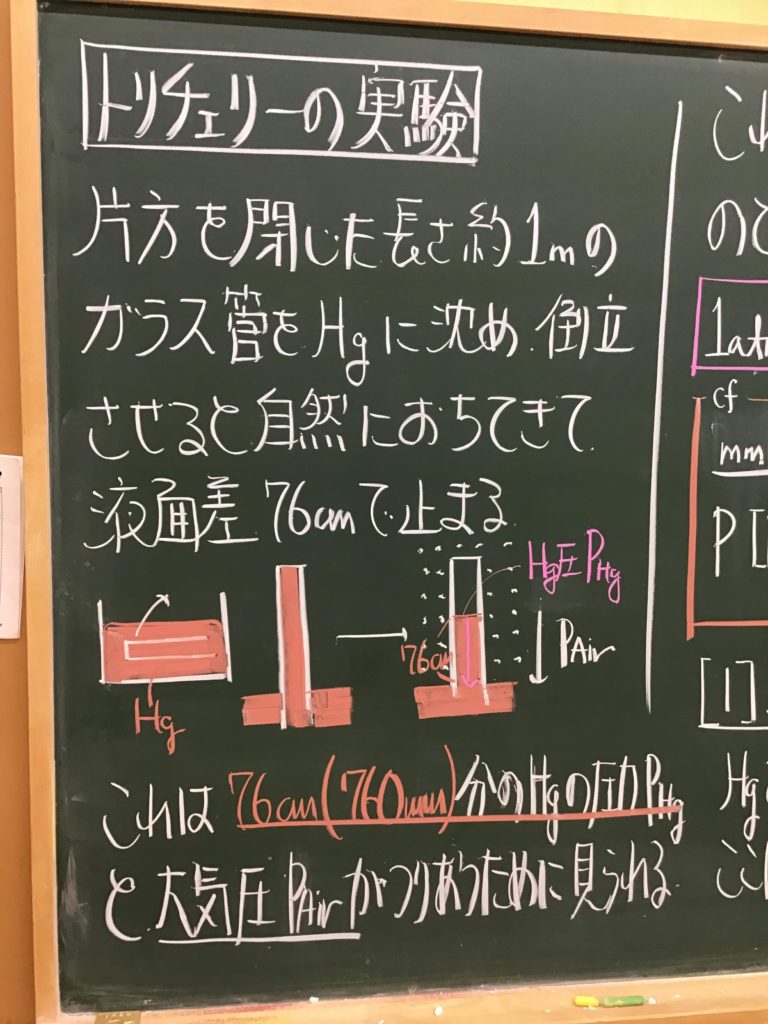 トリチェリーの実験
片方を閉じた長さ約1mの
ガラス管をHgに沈め、倒立
させると自然におちてきて
液面差76cmで止まる
Hg
76cm
Hg圧 PHg
PAir
これは76cm(760mm)分のHgの圧力PHg
と大気圧PAirがつりあうために見られる
これ
のと
1at
cf
mm
P[
[1]
Hg
ここ